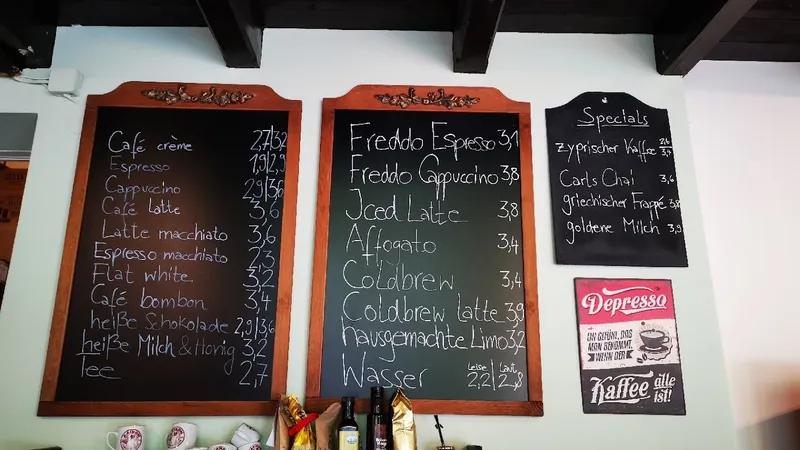 Café crème 2,7|3,2
Espresso 1,9|2,9
Cappuccino 2,9|3,6
Café latte 3,6
Latte macchiato 3,6
Espresso macchiato 2,3
Flat white 3,2
Café bombon 3,4
heiße Schokolade 2,9|3,6
heiße Milch & Honig 3,2
Tee 2,7
Freddo Espresso 3,1
Freddo Cappuccino 3,8
Iced Latte 3,8
Affogato 3,4
Coldbrew 3,4
Coldbrew latte 3,9
hausgemachte Limo 3,2
Wasser Leise 2,2 | Laut 2,8
Specials
zyprischer Kaffee 2,6 3,4
Carls Chai 3,6
griechischer Frappé 3,8
goldene Milch 3,9
Depresso
EIN GEFÜHL, DAS
MAN BEKOMMT,
WENN DER
Kaffee alle
ist!